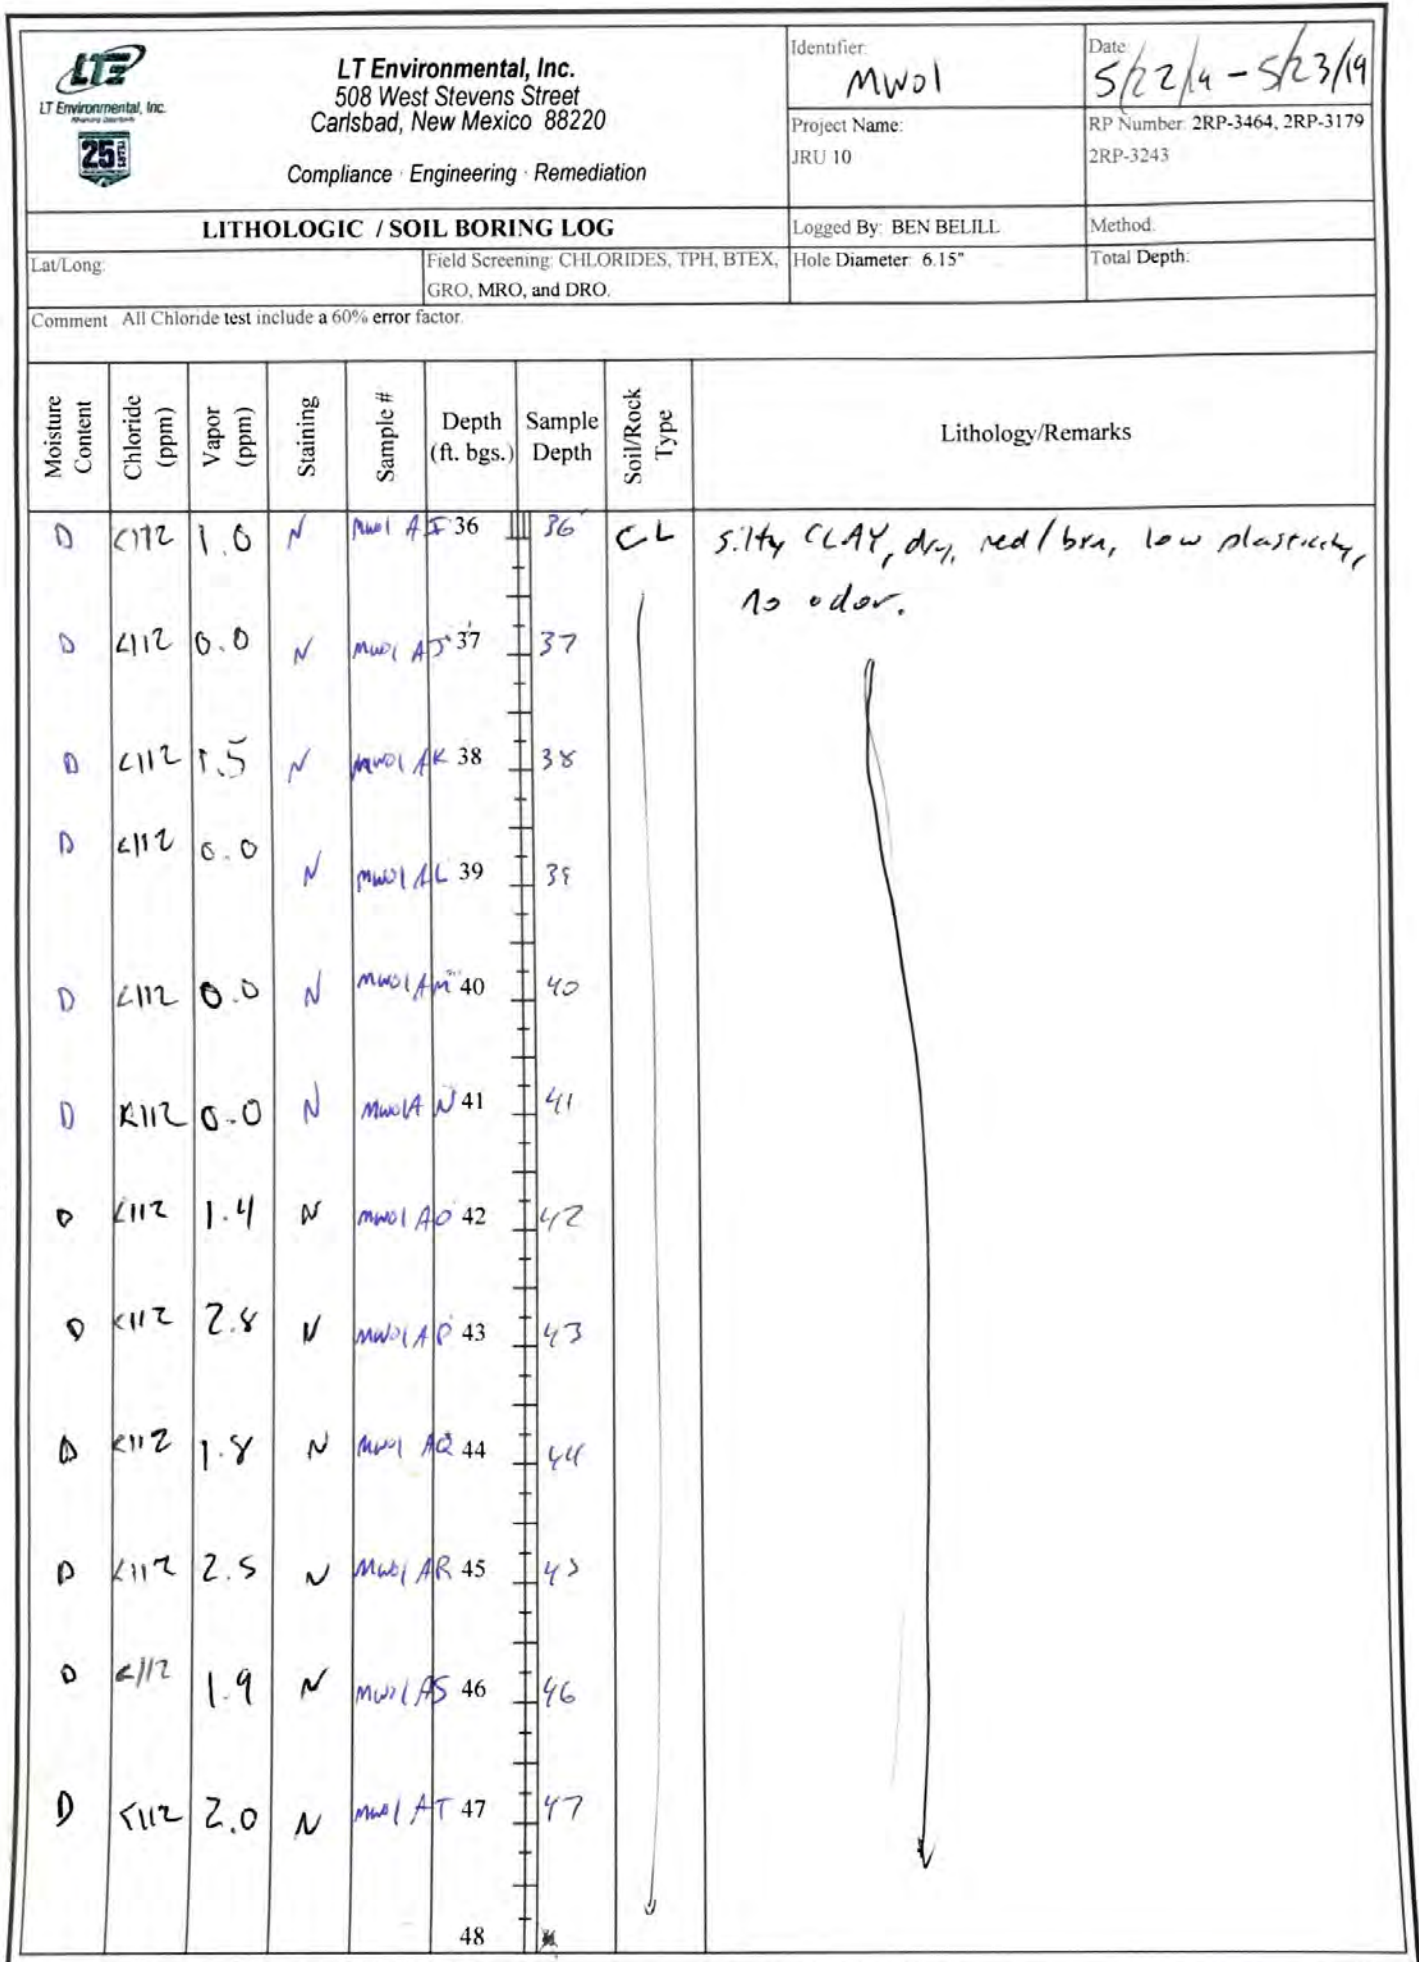 LTE
LT Environmental, Inc.
25 YEARS
LT Environmental, Inc.
508 West Stevens Street
Carlsbad, New Mexico 88220
Compliance · Engineering · Remediation
Identifier: MW01
Date: 5/22/19 - 5/23/19
Project Name: JRU 10
RP Number: 2RP-3464, 2RP-3179
2RP-3243
LITHOLOGIC / SOIL BORING LOG
Logged By: BEN BELILL
Method:
Lat/Long:
Field Screening: CHLORIDES, TPH, BTEX,
GRO, MRO, and DRO.
Hole Diameter: 6.15"
Total Depth:
Comment: All Chloride test include a 60% error factor.
Moisture Content
Chloride (ppm)
Vapor (ppm)
Staining
Sample #
Depth (ft. bgs.)
Sample Depth
Soil/Rock Type
Lithology/Remarks
D <112 1.0 N MW01 AI 36 36' CL silty CLAY, dry, red/brn, low plasticity,
no odor.
D <112 0.0 N MW01 AJ 37 37
D <112 1.5 N MW01 AK 38 38
D <112 0.0 N MW01 AL 39 39
D <112 0.0 N MW01 AM 40 40
D <112 0.0 N MW01 AN 41 41
D <112 1.4 N MW01 AO 42 42
D <112 2.8 N MW01 AP 43 43
D <112 1.8 N MW01 AQ 44 44
D <112 2.5 N MW01 AR 45 45
D <112 1.9 N MW01 AS 46 46
D <112 2.0 N MW01 AT 47 47
48